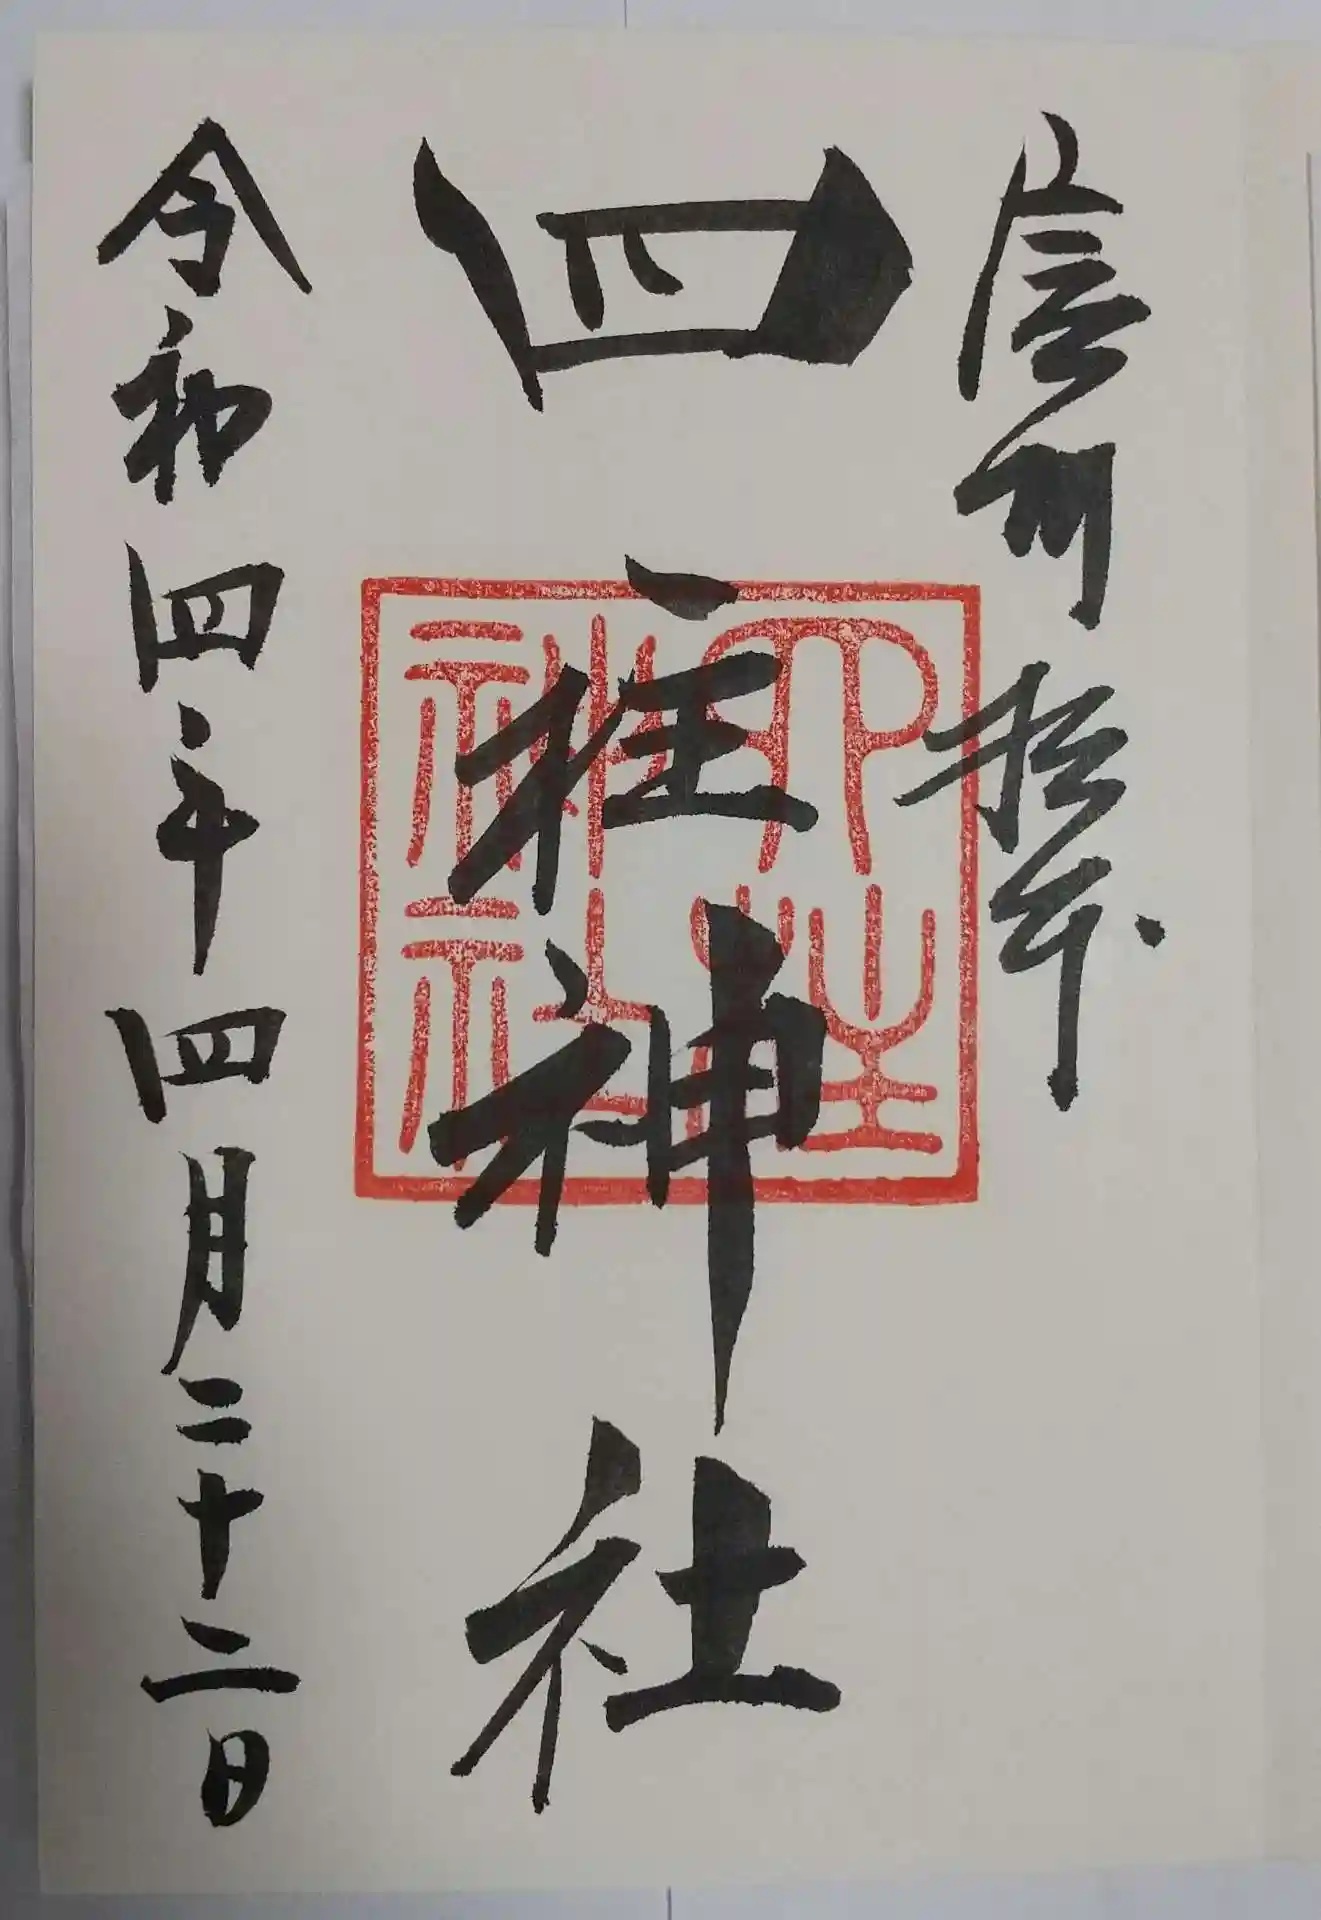 信州 松本
四柱神社
四柱神社
令和四年四月二十二日